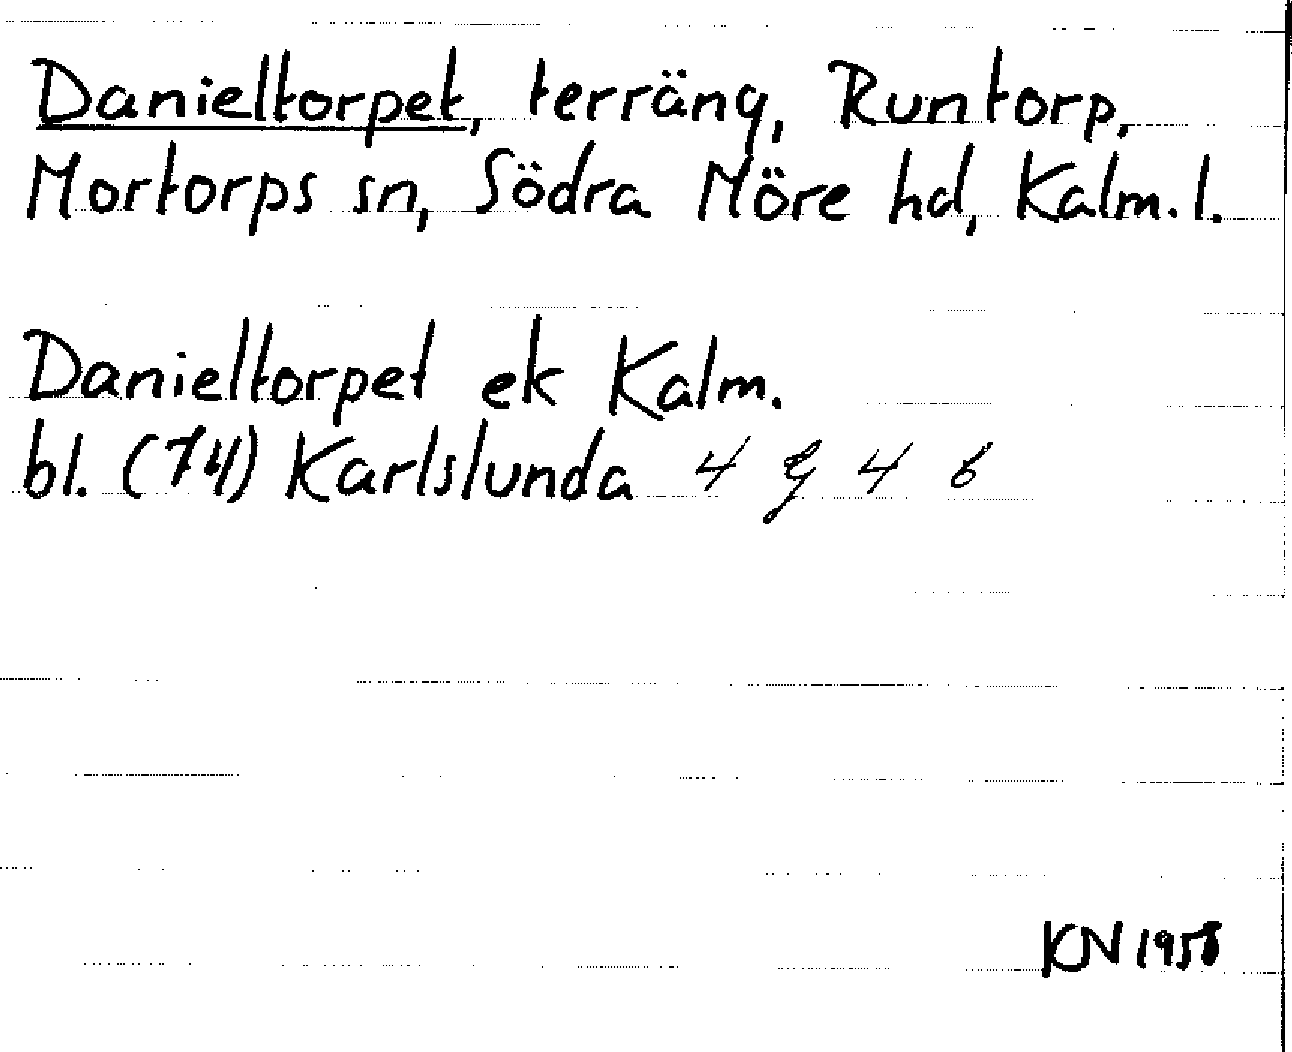 Danieltorpet, terräng, Runtorp,
Mortorps sn, Södra Möre hd, Kalm. l.
Danieltorpet ek Kalm.
bl. (74) Karlslunda 4 G 4 b
KN 1958